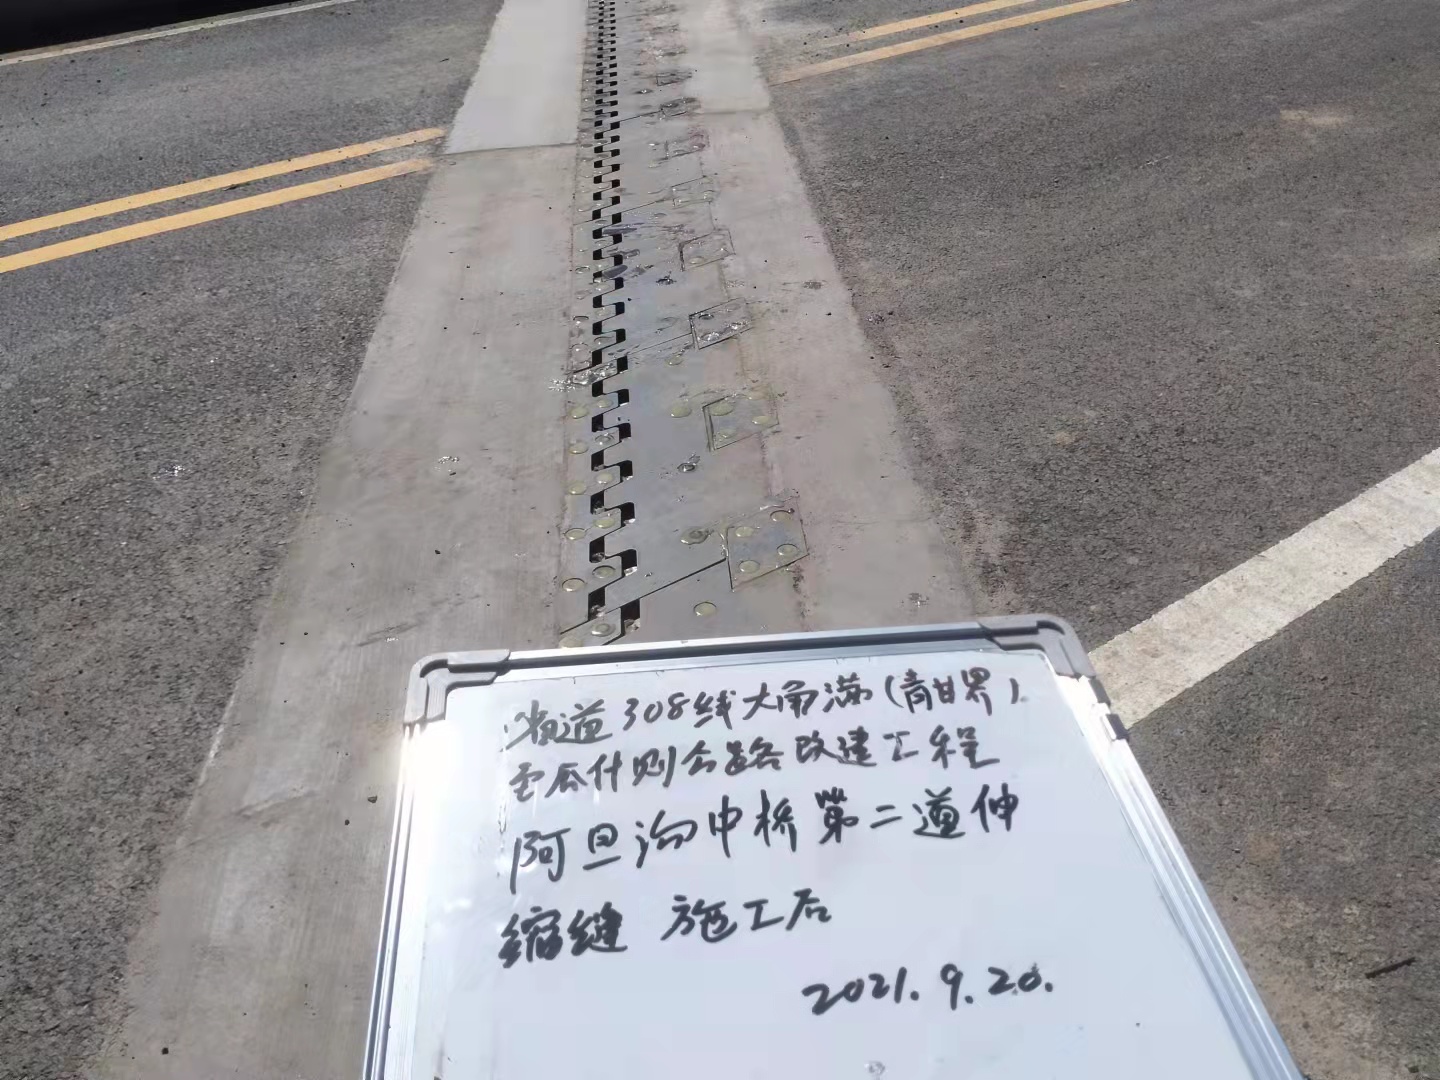 省道308线大南满(青甘界)
至瓜什则公路改建工程
阿旦沟中桥第二道伸
缩缝 施工后
2021.9.20.